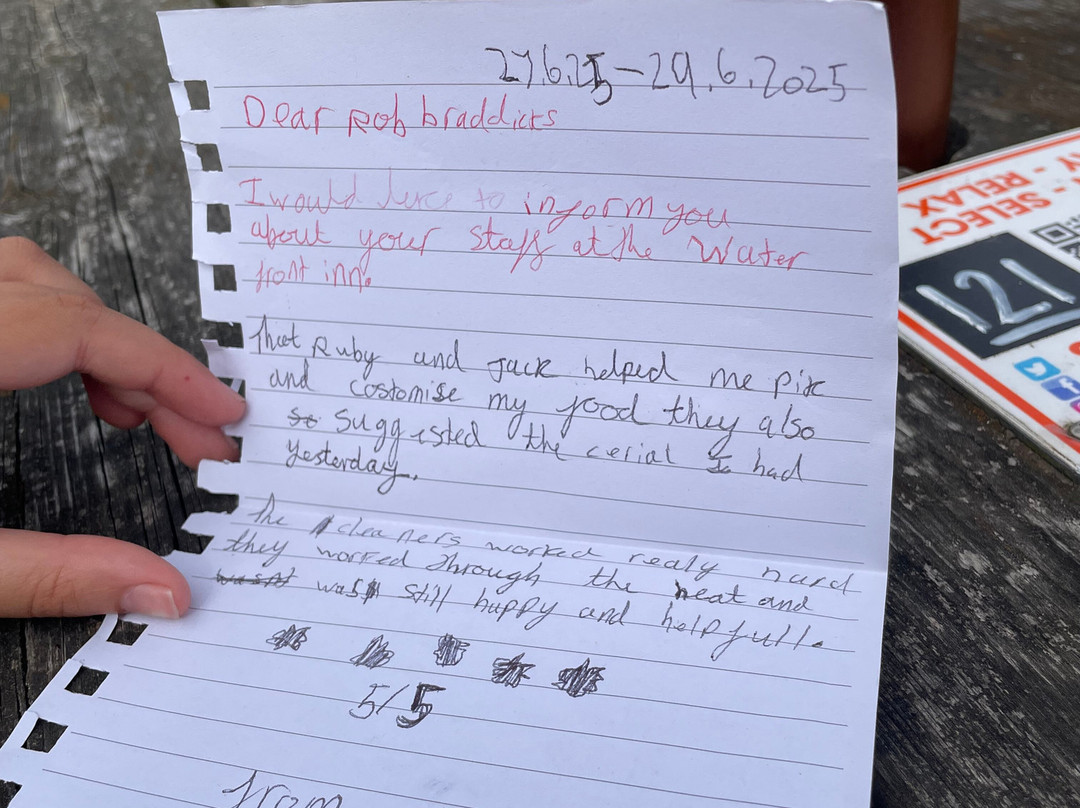 27.6.25-29.6.2025
Dear Rob braddicts
I would like to inform you
about your staff at the Water
front inn.
that Ruby and Jack helped me pix
and costomise my food they also
so suggested the cerial I had
Yesterday.
the cleaners worked realy hard
they worked through the heat and
wasnt was still happy and helpfull.
5/5
from
SELECT
- RELAX
121